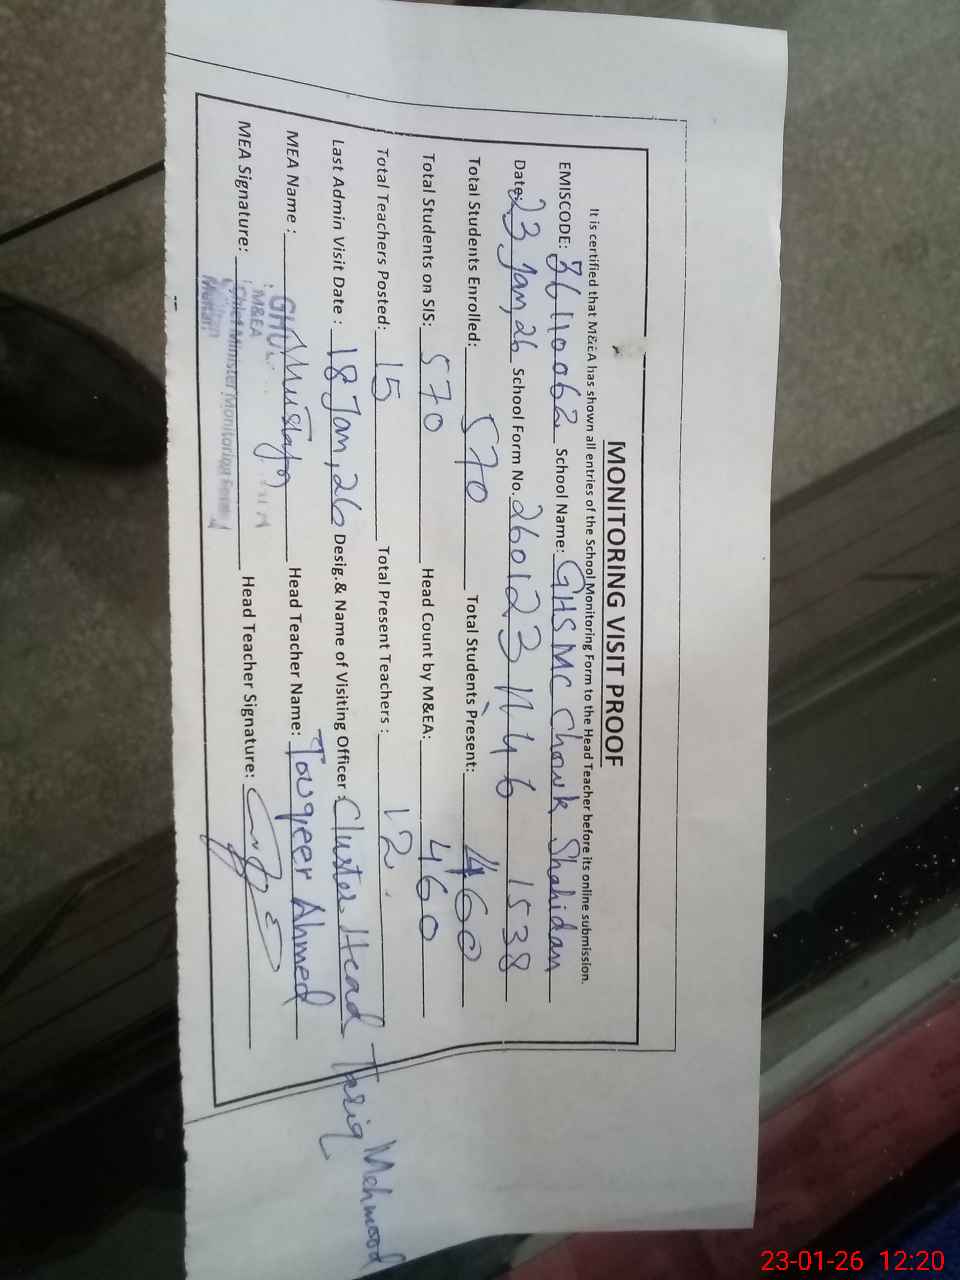 MONITORING VISIT PROOF
It is certified that M&EA has shown all entries of the School Monitoring Form to the Head Teacher before its online submission.
EMISCODE: 36110062 School Name: GHS MC Chowk Shahidan
Date: 23 Jan, 26 School Form No. 260123 1538
Total Students Enrolled: 570 Total Students Present: 460
Total Students on SIS: 570 Head Count by M&EA: 460
Total Teachers Posted: 15 Total Present Teachers : 12
Last Admin Visit Date : 18 Jan, 26 Desig.& Name of Visiting Officer : Cluster Head Tariq Mehmood
MEA Name : Mustafa Head Teacher Name: Touqeer Ahmed
MEA Signature: Head Teacher Signature:
M&EA
Chief Minister Monitoring Force
Multan
23-01-26 12:20